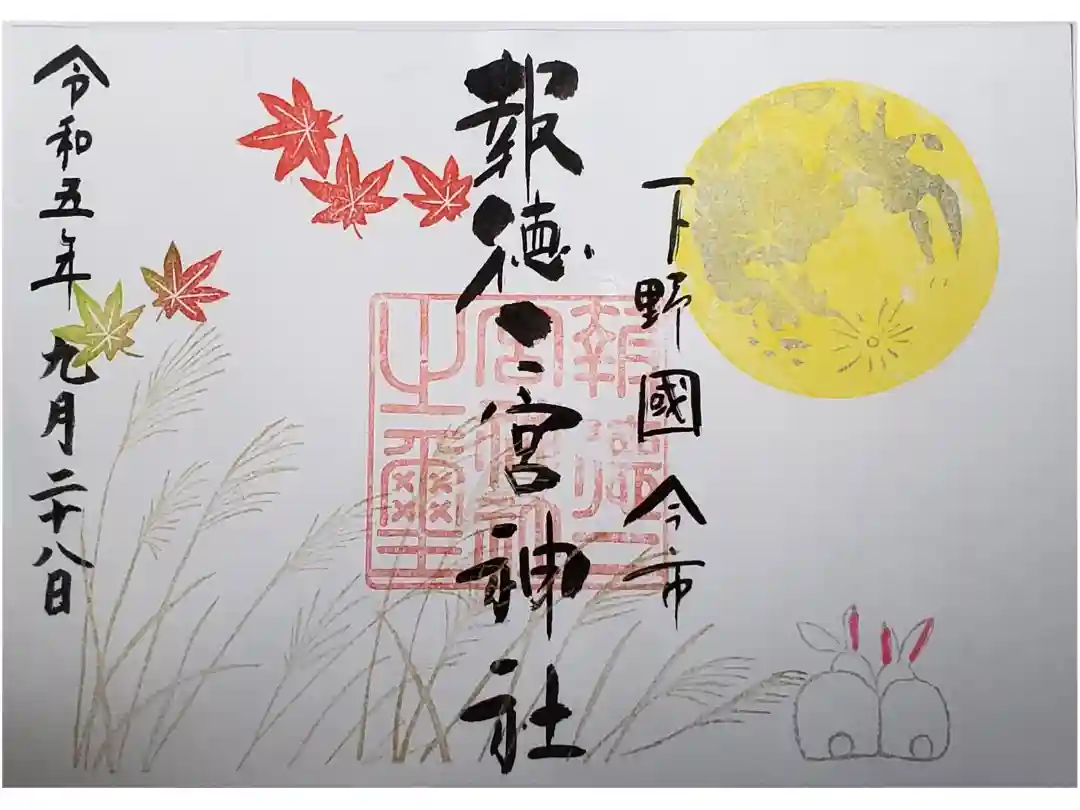 下野國今市
報徳二宮神社
報徳二宮神社之璽
令和五年九月二十八日